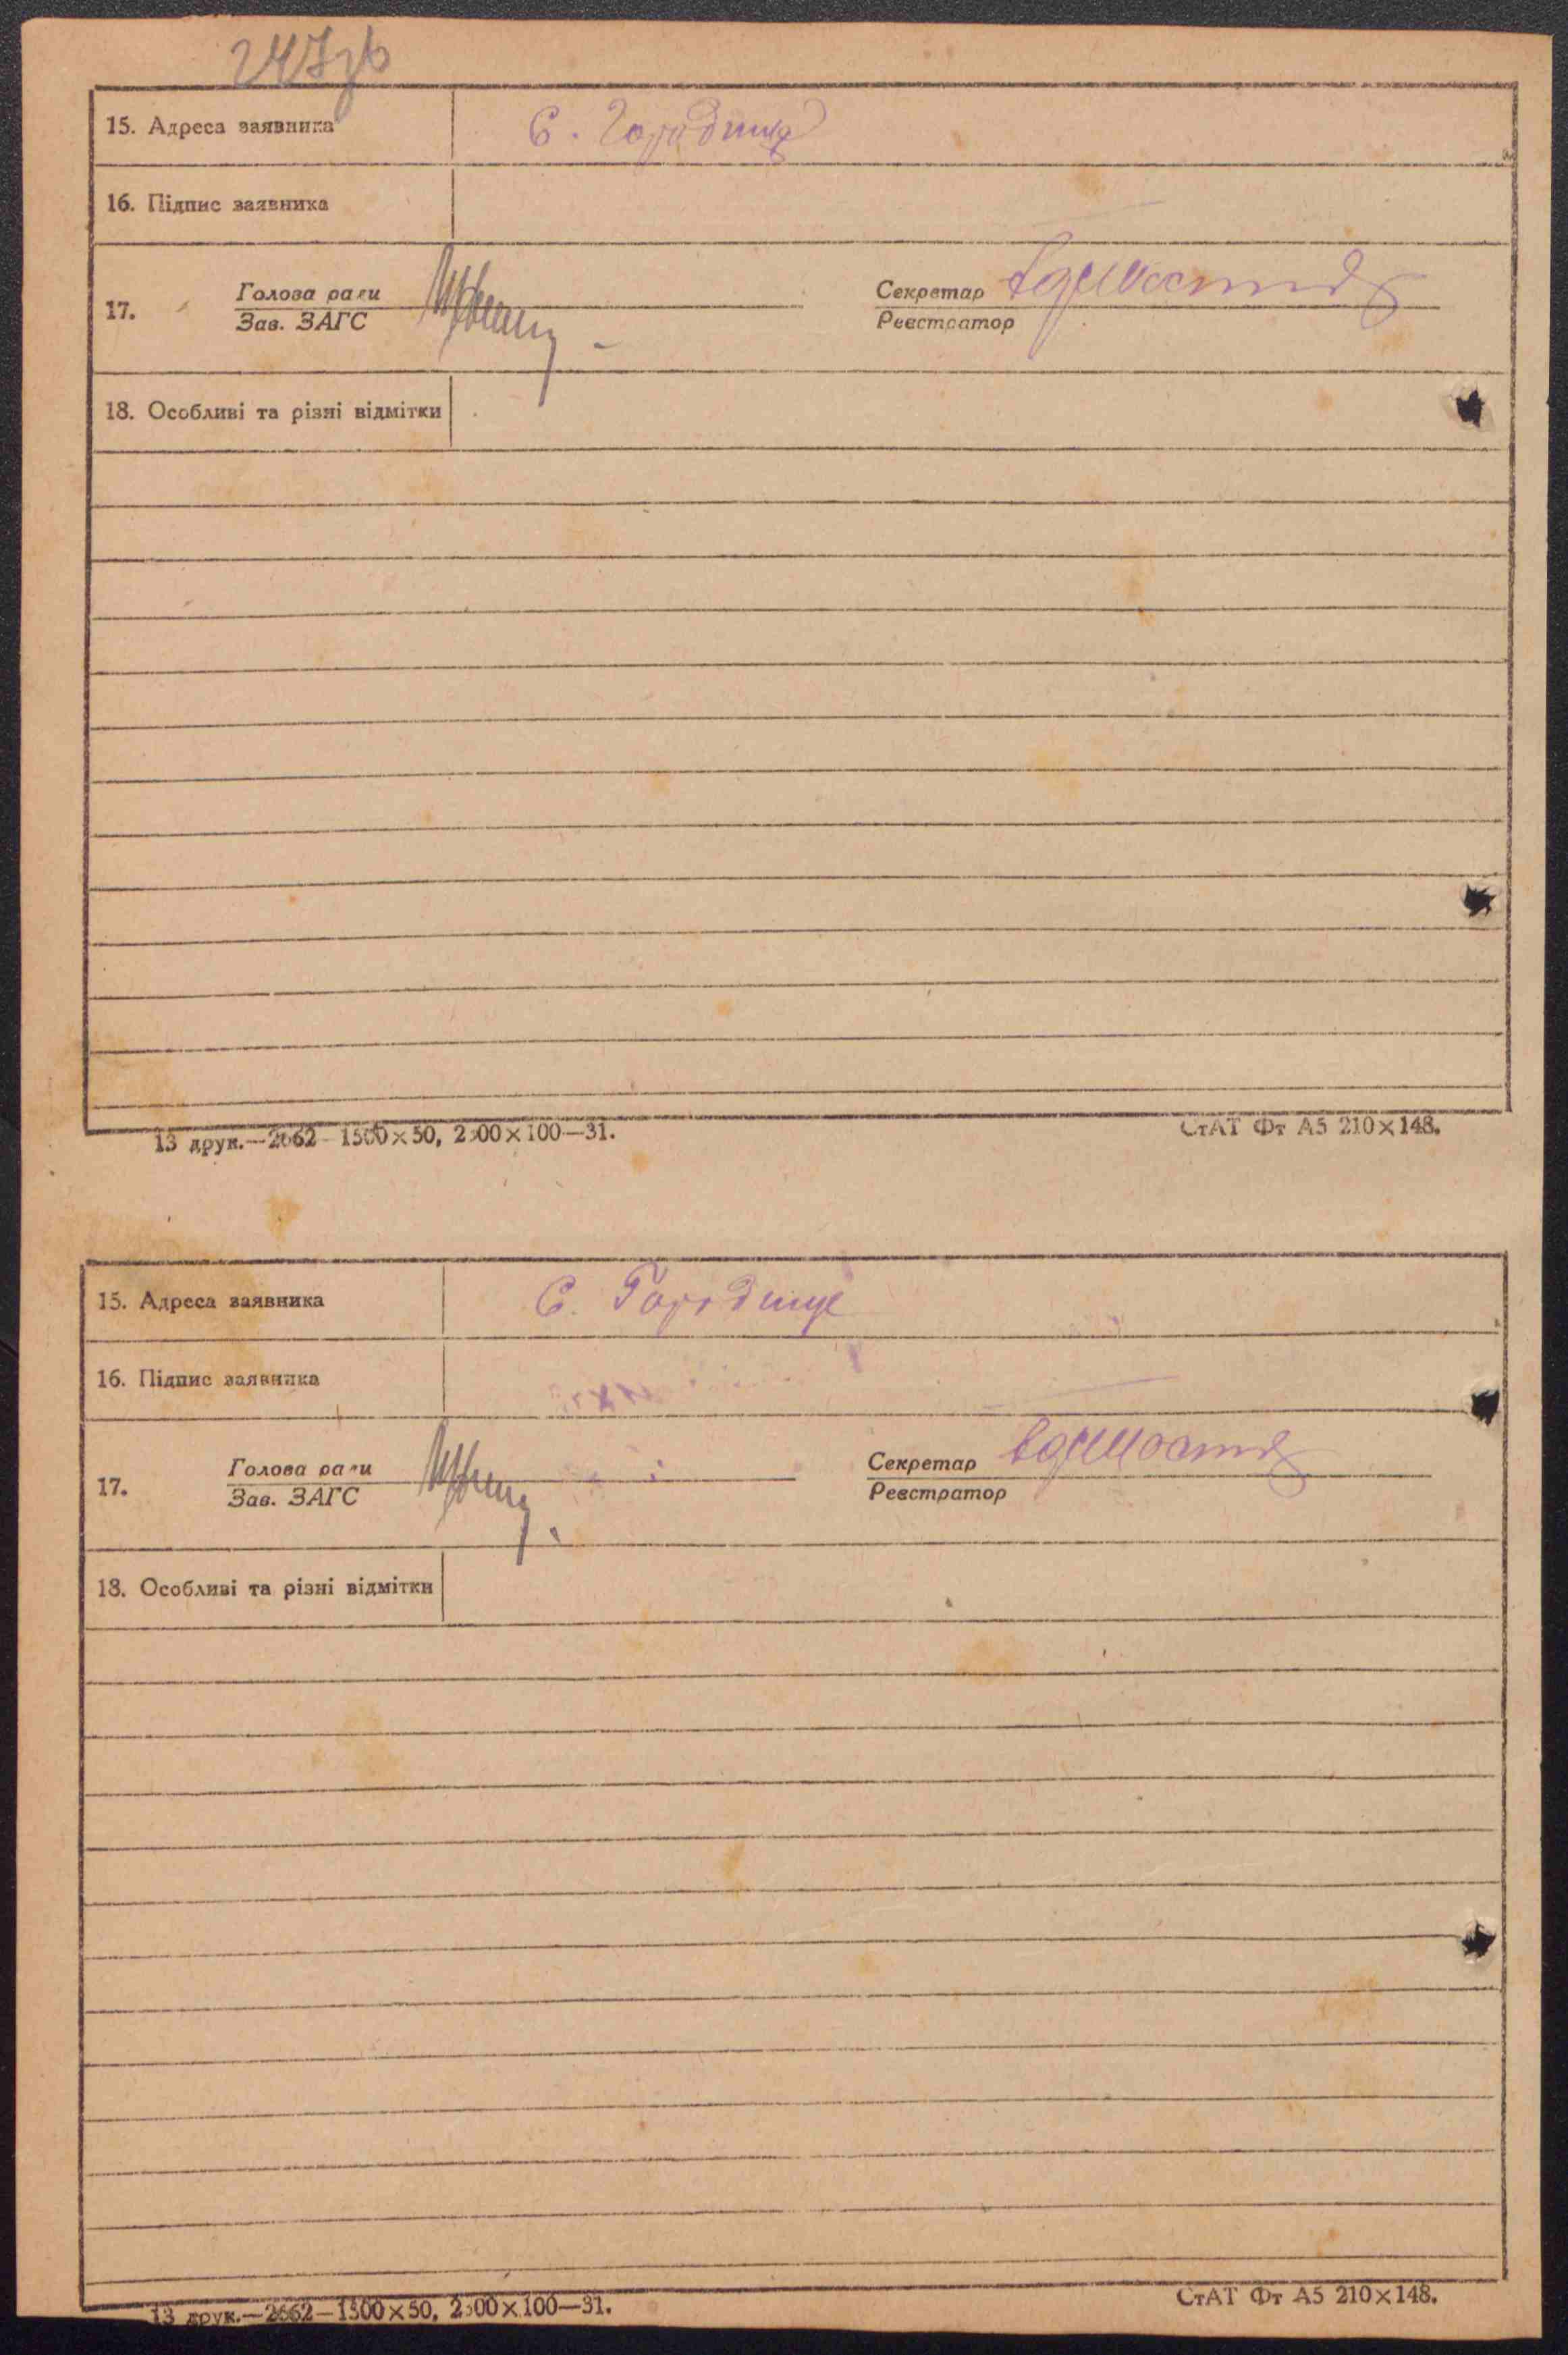 247зв
15. Адреса заявника С. Городище
16. Підпис заявника
Голова ради Секретар
17.
Зав. ЗАГС Реєстратор
18. Особливі та різні відмітки
13 друк.—2662—1500×50, 2500×100—31. СтАТ Фт А5 210×148.
15. Адреса заявника С. Городище
16. Підпис заявника
Голова ради Секретар
17.
Зав. ЗАГС Реєстратор
18. Особливі та різні відмітки
13 друк.—2662—1500×50, 2500×100—31. СтАТ Фт А5 210×148.